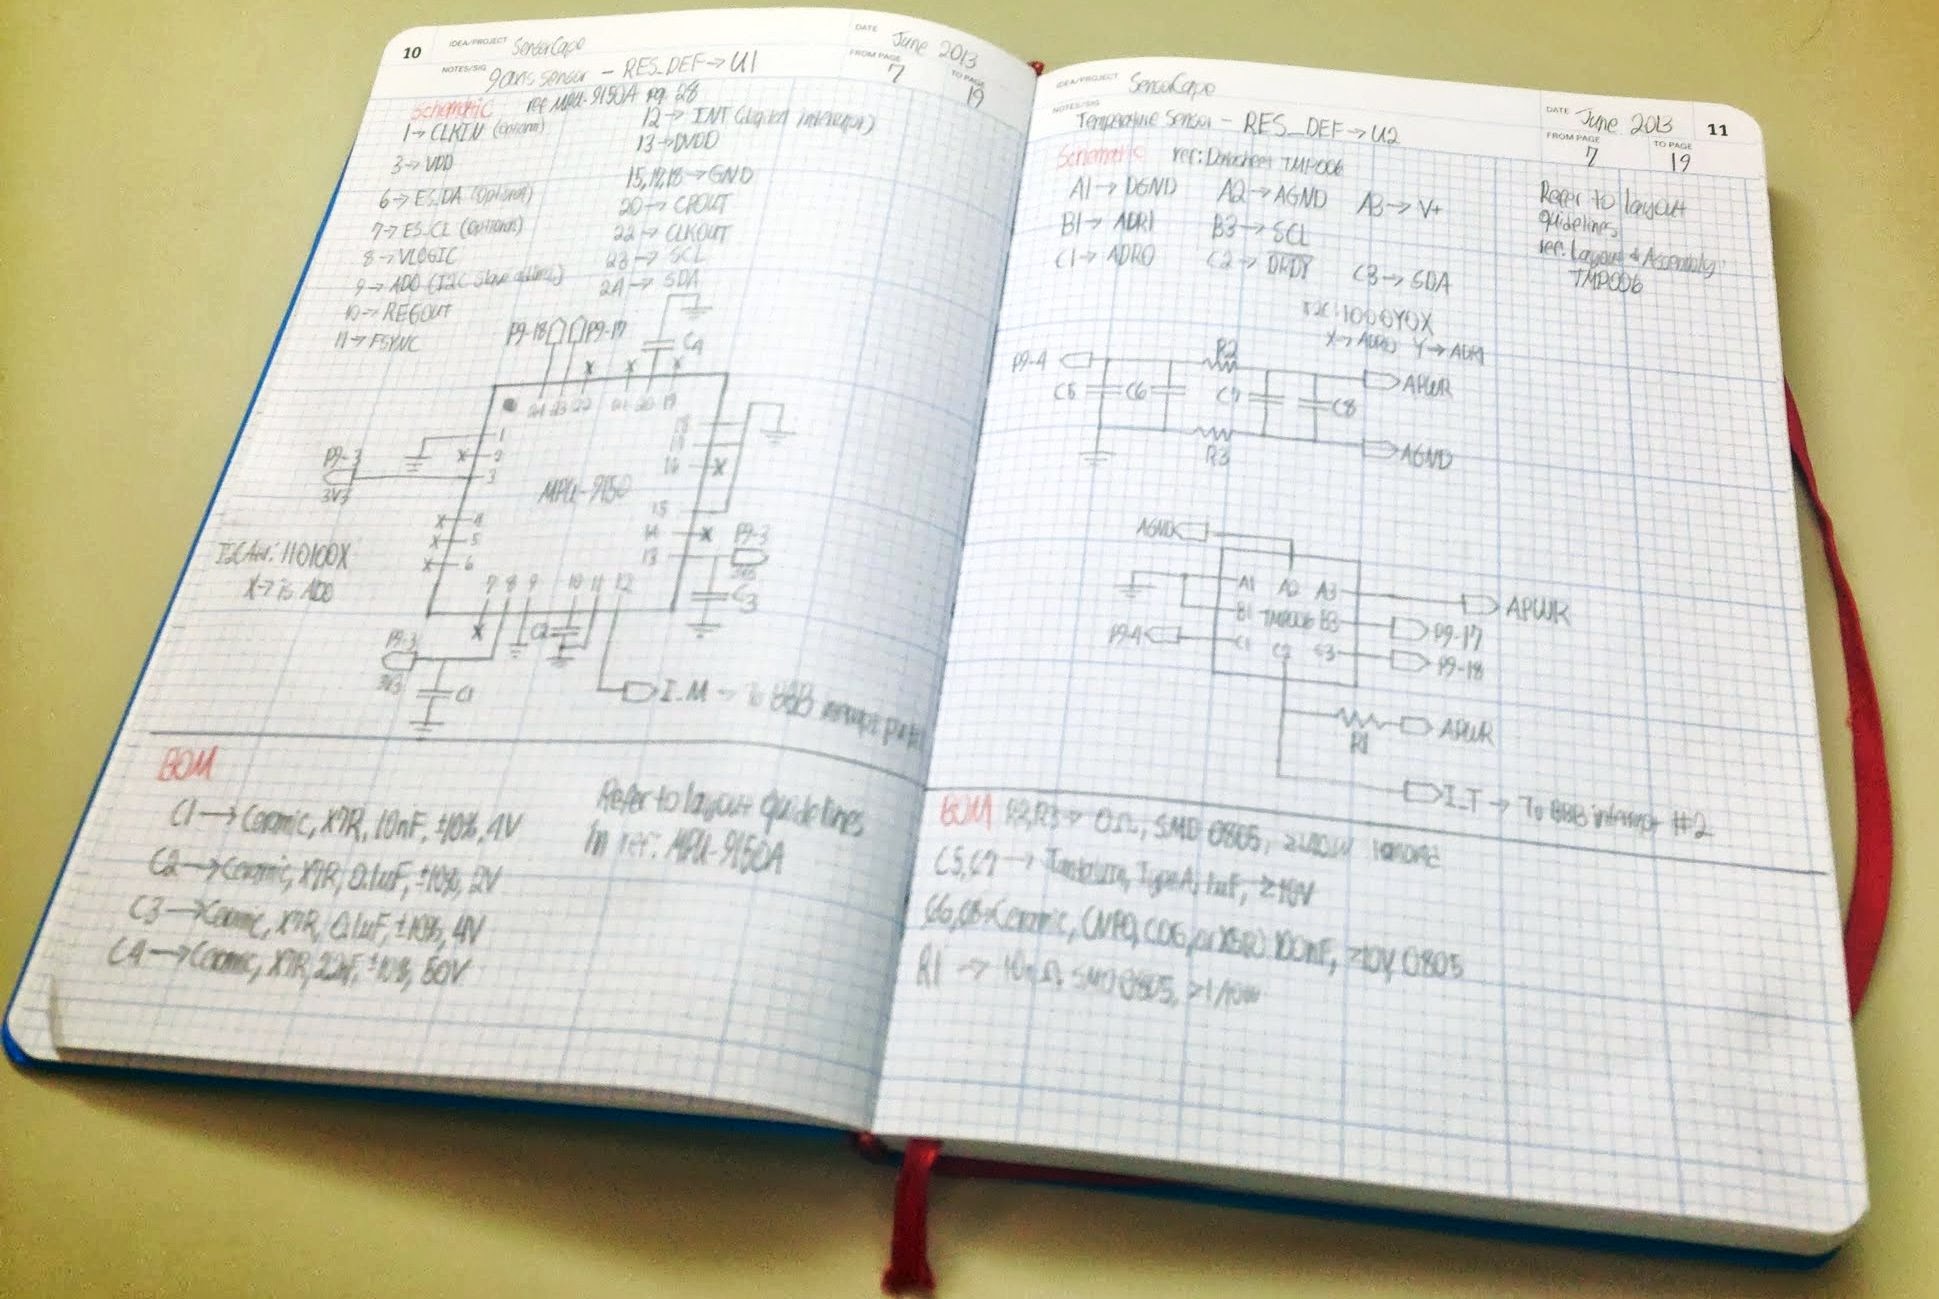 10
IDEA/PROJECT SensorCape
DATE June 2013
NOTES/SIG 9axis sensor - RES_DEF → U1
FROM PAGE 7
TO PAGE 19
Schematic ref MPU-9150A pg. 28
1 → CLKIN (optional)
3 → VDD
6 → ES_DA (Optional)
7 → ES_CL (Optional)
8 → VLOGIC
9 → AD0 (I2C slave address)
10 → REGOUT
11 → FSYNC
12 → INT (digital interrupt)
13 → DVDD
15,17,18 → GND
20 → CPOUT
22 → CLKOUT
23 → SCL
24 → SDA
P9-18 P9-17
C4
24 23 22 21 20 19
1
2
3
P9-3
3V3
MPU-9150
16
15
14
13
P9-3
C3
4
5
6
I2C Adr: 110100X
X → is AD0
7 8 9 10 11 12
C2
P9-3
3V3
C1
I_M → To BBB interrupt
BOM
C1 → Ceramic, X7R, 10nF, ±10%, 4V
C2 → Ceramic, X7R, 0.1uF, ±10%, 2V
C3 → Ceramic, X7R, 0.1uF, ±10%, 4V
C4 → Ceramic, X7R, 2.2nF, ±10%, 50V
Refer to layout guidelines
in ref: MPU-9150A
11
IDEA/PROJECT SensorCape
DATE June 2013
NOTES/SIG Temperature Sensor - RES_DEF → U2
FROM PAGE 7
TO PAGE 19
Schematic ref: Datasheet TMP006
A1 → DGND A2 → AGND A3 → V+
B1 → ADR1 B3 → SCL
C1 → ADR0 C2 → DRDY C3 → SDA
Refer to layout
guidelines
ref: Layout & Assembly
TMP006
I2C: 1000Y0X
X → ADR0 Y → ADR1
P9-4
R2
APWR
C5 C6 C7 C8
R3
AGND
AGND
A1 A2 A3
APWR
B1 TMP006 B3
P9-17
P9-4
C1 C2
P9-18
R1
APWR
I_T → To BBB interrupt #2
BOM R2,R3 → 0Ω, SMD 0805,
C5,C7 → Tantalum, Type A, 1uF, ≥10V
C6,C8 → Ceramic, (NP0, C0G, or X5R) 100nF, ≥10V, 0805
R1 → SMD 0805, >1/10W